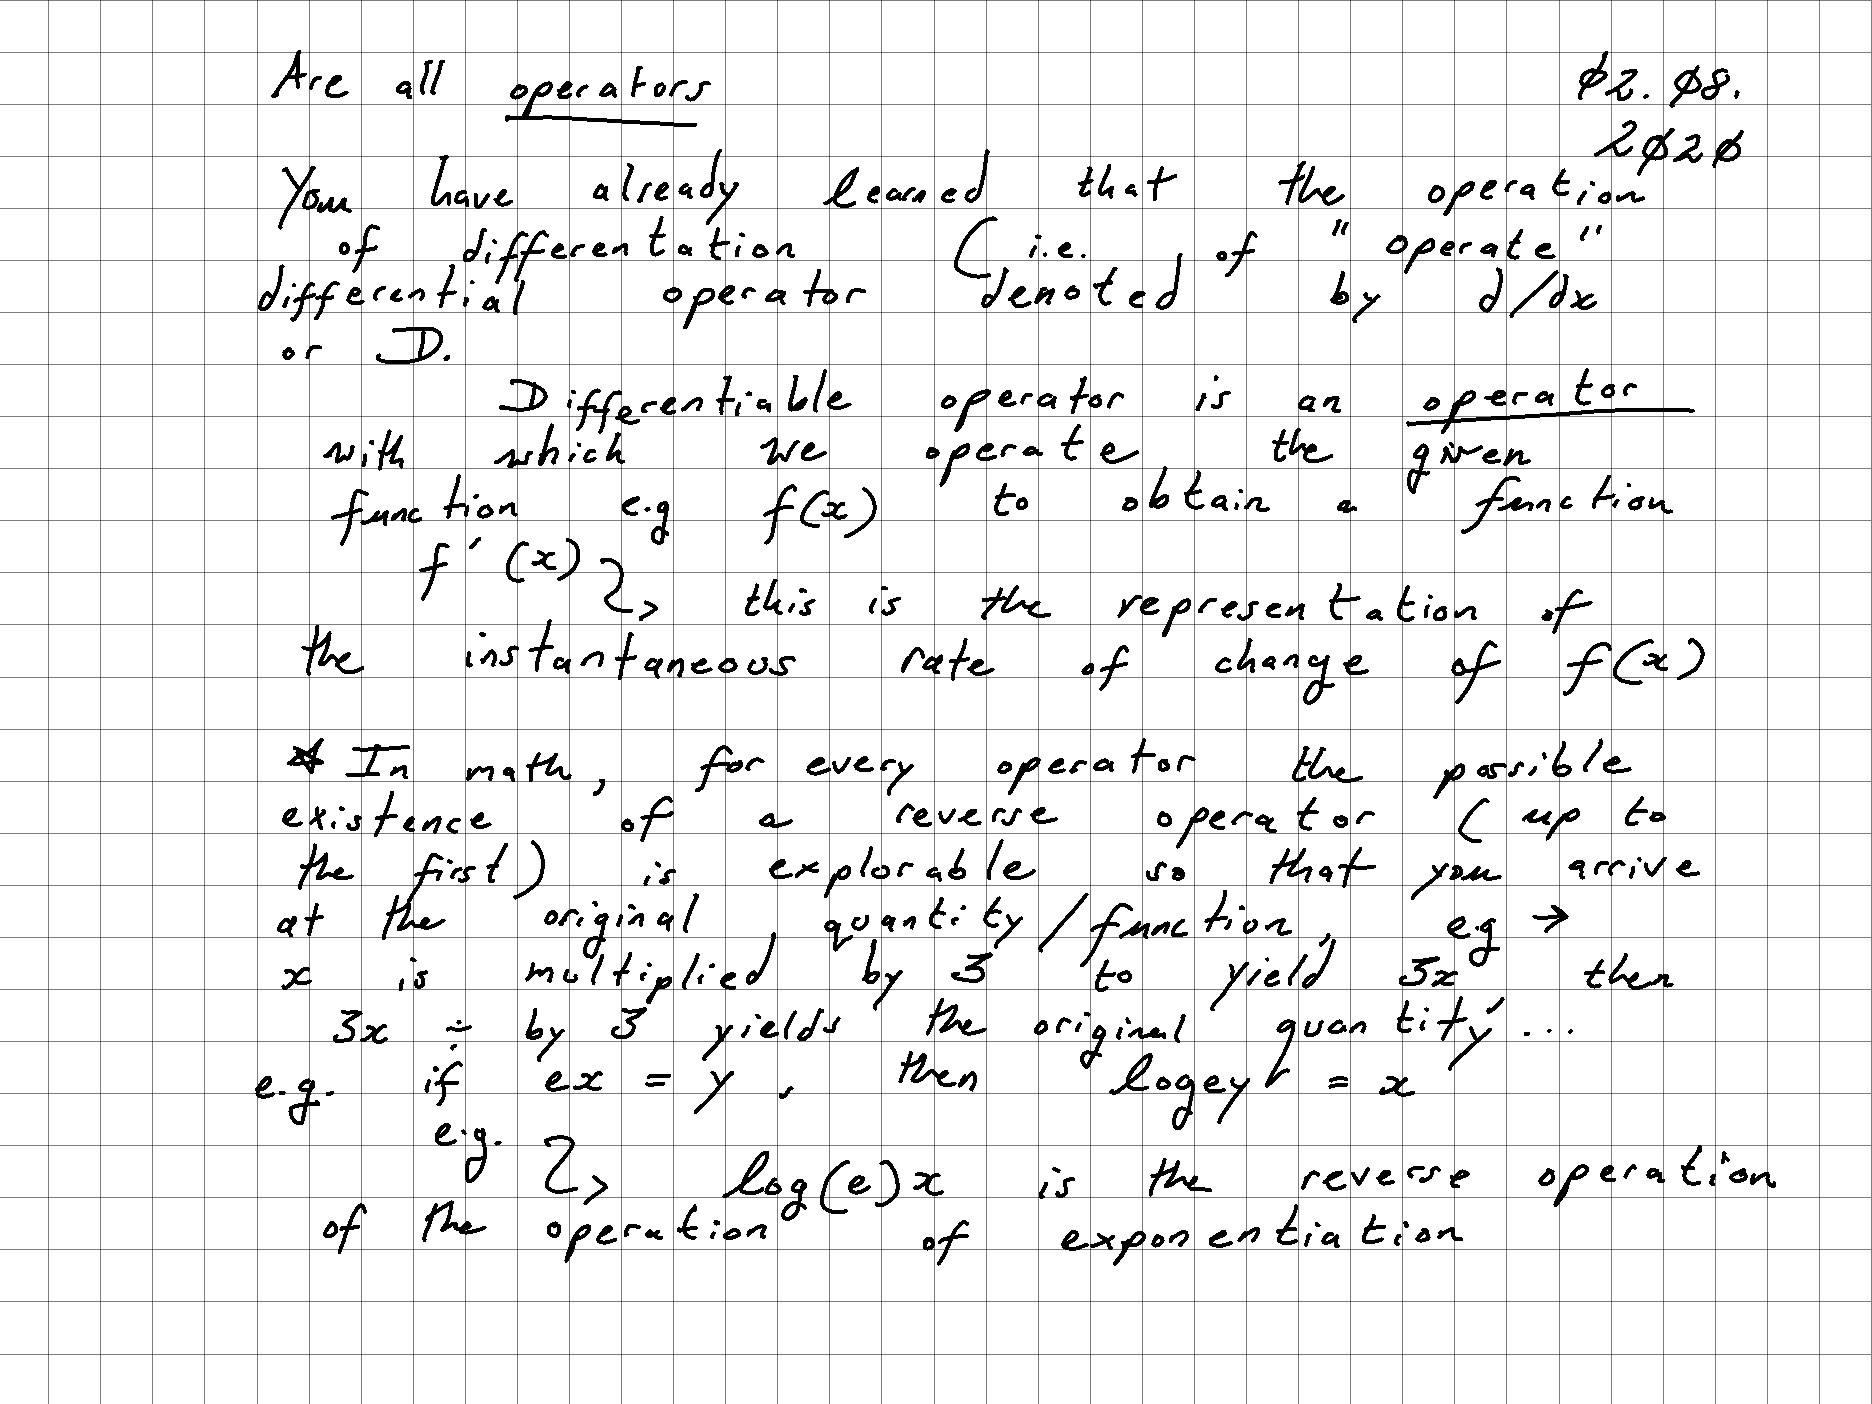 Are all operators
02.08.
2020
You have already learned that the operation
of differentation (i.e. of "operate"
differential operator denoted by d/dx
or D.
Differentiable operator is an operator
with which we operate the given
function e.g f(x) to obtain a function
f'(x) → this is the representation of
the instantaneous rate of change of f(x)
☆ In math, for every operator the possible
existence of a reverse operator (up to
the first) is explorable so that you arrive
at the original quantity/function, e.g →
x is multiplied by 3 to yield 3x then
3x ÷ by 3 yields the original quantity...
e.g. if ex = y, then logey = x
e.g. → log(e)x is the reverse operation
of the operation of exponentiation